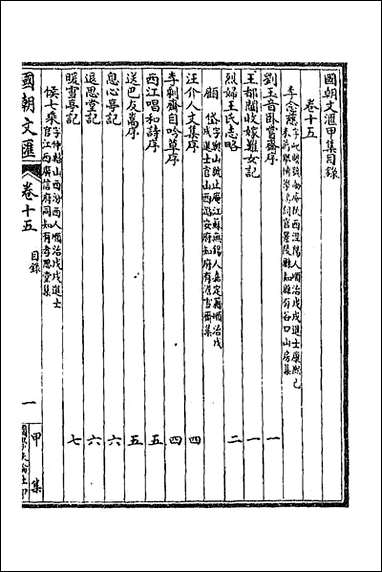 國朝文滙甲集目錄
卷十五
李念慈 字屺瞻號劬庵陝西涇陽人順治戊戌進士康熙己
未薦舉博學鴻詞官景陵縣知縣有谷口山房集
劉玉音臥嘗齋序 一
王都閫收嫁難女記 一
烈婦王氏志略 二
顧岱 字 山號止庵江蘇無錫人嘉定籍順治戊
戌進士官山西 安府知府有 雪齋集
汪介人文集序 四
李剩齋自吟草序 四
西江唱和詩序 五
送巴友萬序 五
息心亭記 六
退思堂記 六
暖雪亭記 七
侯七乘 字仲輅山西汾西人順治戊戌進士
官江西廣信府同知有孝思堂集
國朝文滙 卷十五 目錄 一 甲集
國學扶輪社印